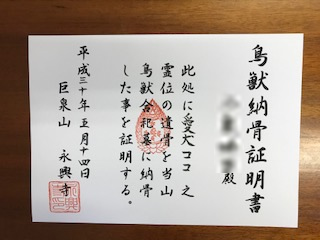 鳥獣納骨証明書
殿
此処に愛犬ココ之
霊位の遺骨を当山
鳥獣合祀墓に納骨
した事を証明する。
平成三十年五月十四日
巨泉山 永興寺